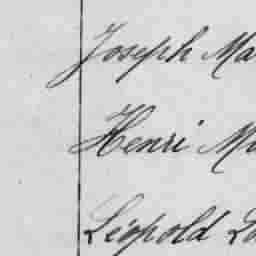 Joseph Ma
Henri M
Léopold